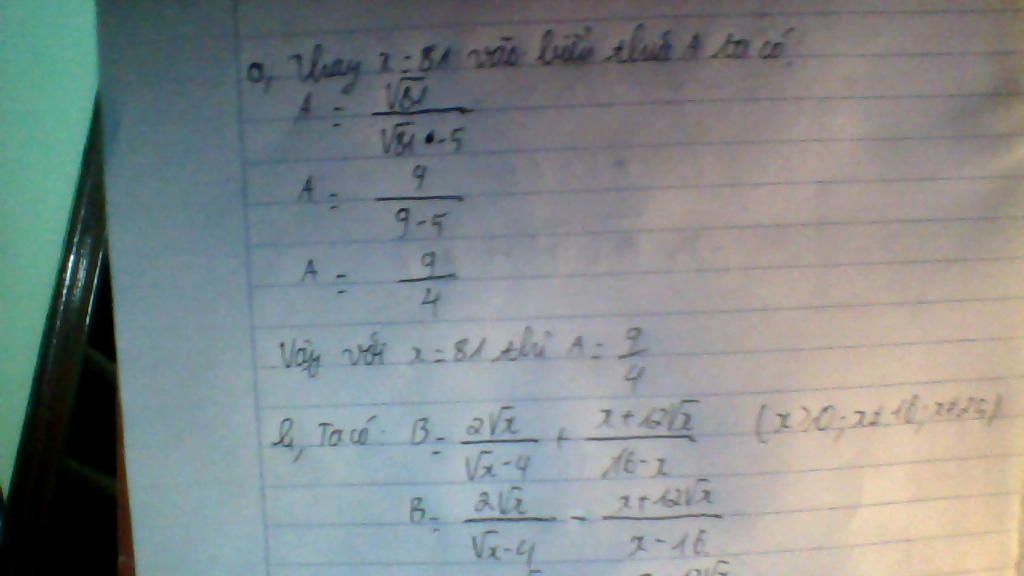 a, Thay x = 81 vào biểu thức A ta có:
A = √81 / (√81 - 5)
A = 9 / (9 - 5)
A = 9/4
Vậy với x = 81 thì A = 9/4
b, Ta có: B = 2√x / (√x - 4) + (x + 12√x) / (16 - x) (x ≥ 0; x ≠ 16; x ≠ 25)
B = 2√x / (√x - 4) - (x + 12√x) / (x - 16)